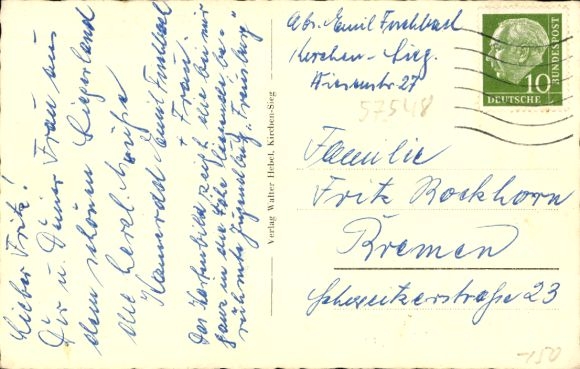 Lieber Fritz!
Dir u. Deiner Frau aus
dem schönen Siegerland
die herzl. Grüße
Kamerad Emil Fischbach
+ Frau.
Das Kartenbild zeigt die bei mir
ganz in der Nähe liegende be-
rühmte Jugendburg „Freusburg"
Verlag Walter Hebel, Kirchen-Sieg
Abs. Emil Fischbach
Kirchen-Sieg.
Wiesenstr. 27
57548
10
DEUTSCHE
BUNDESPOST
Familie
Fritz Rockhorn
Bremen
Schweitzerstraße 23
-150